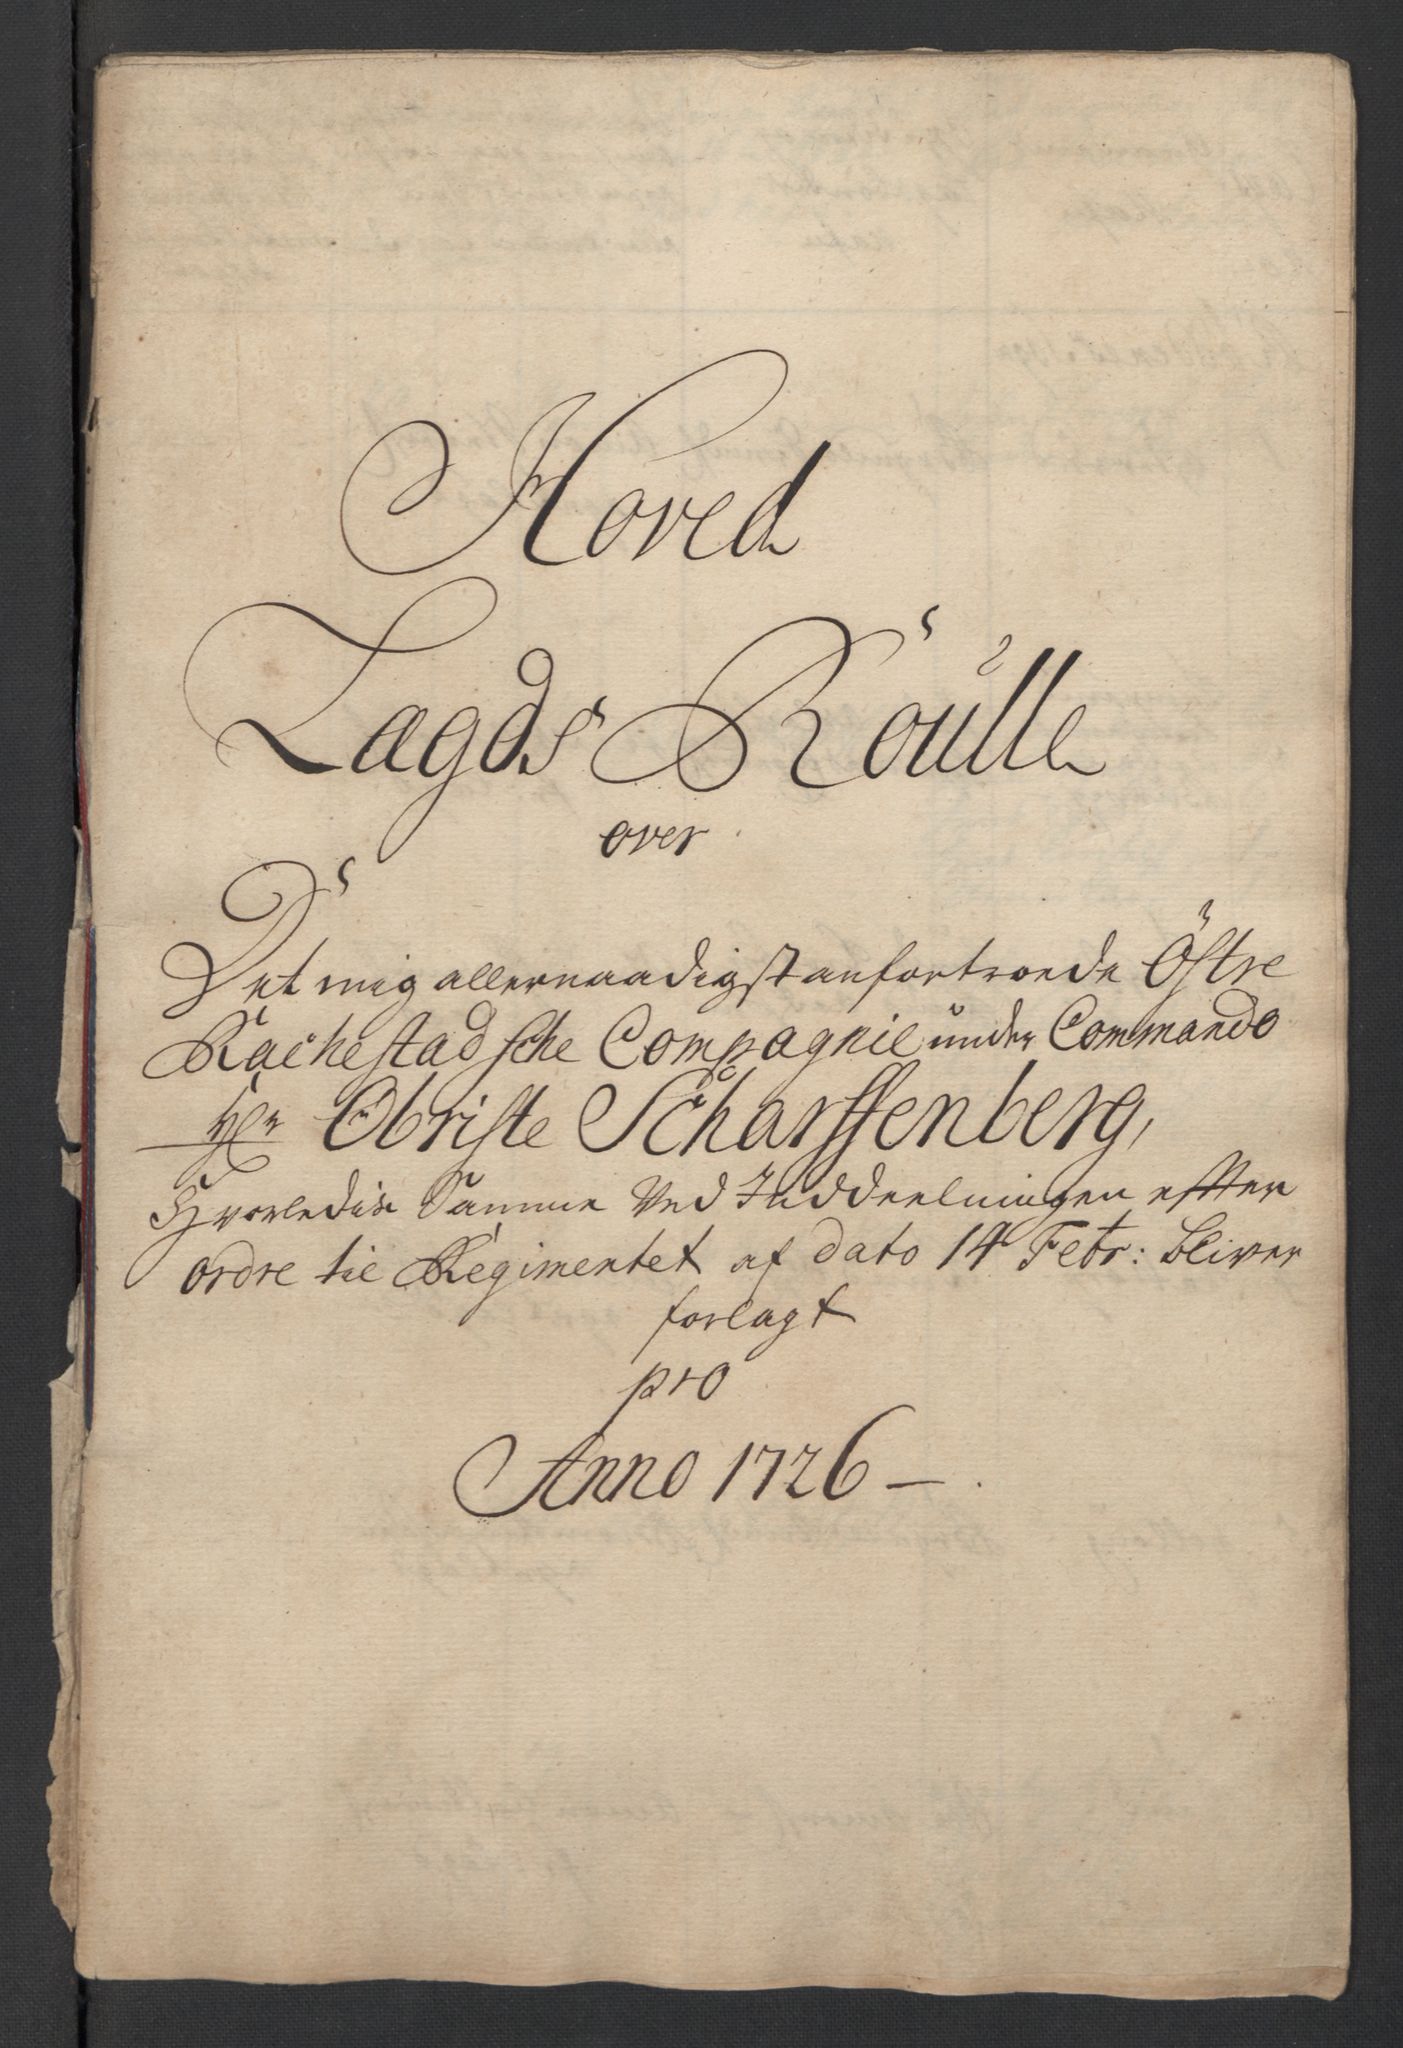 Hoved
Lagds Roülle
over
Det mig allernaadigst anfortroede Östre
Rachestadsche Compagnie ünder Commando
Hr Obriste Scharffenberg,
Hvorledis Samme Ved Inddeelningen effter
ordre til Regimentet af dato 14 Febr: bliver
forlagt
pro
Anno 1726 –.